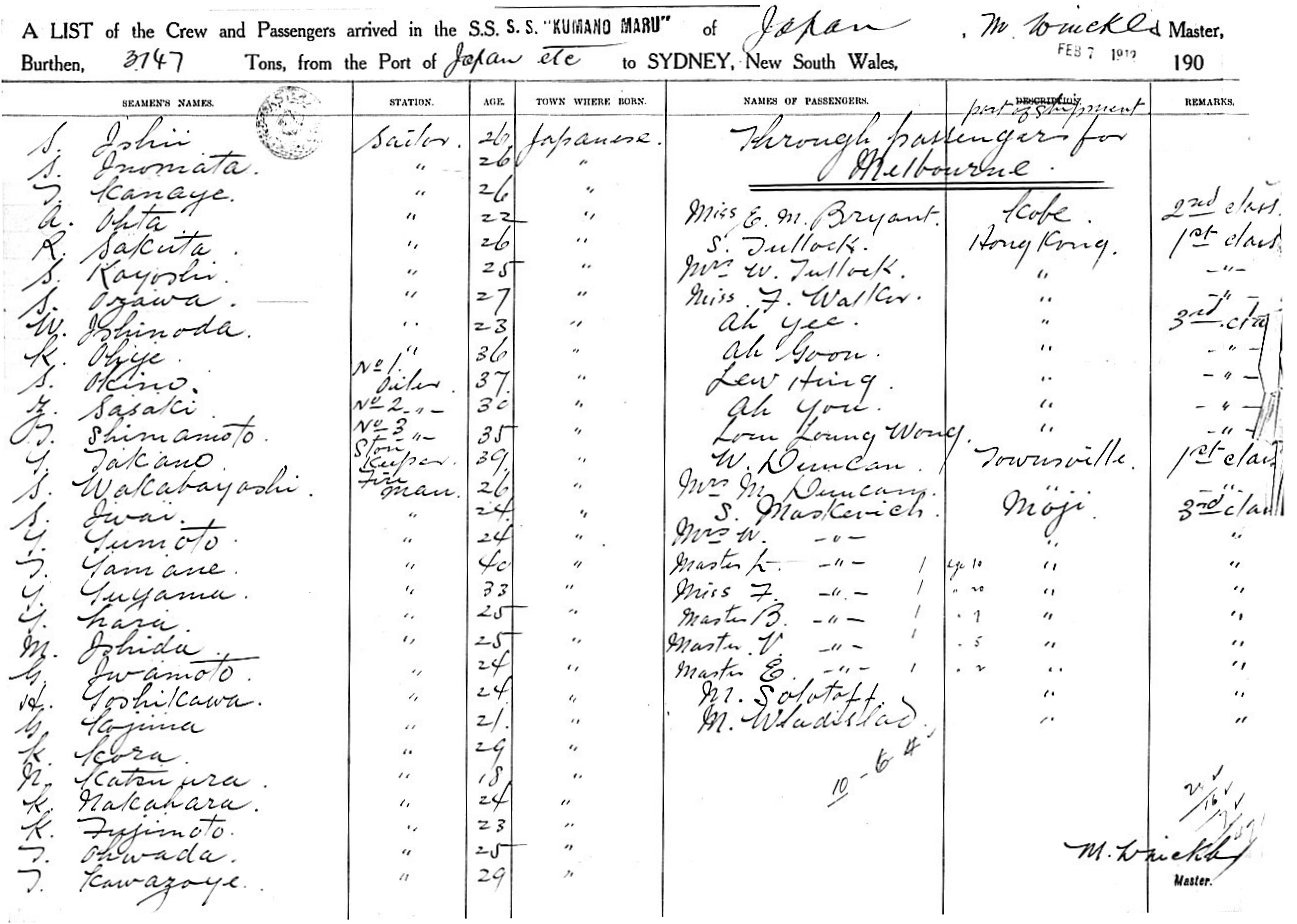 A LIST of the Crew and Passengers arrived in the S.S. S. S. "KUMANO MARU" of Japan, M. Winckler Master,
FEB 7 1912
Burthen, 3147 Tons, from the Port of Japan etc to SYDNEY, New South Wales, 190
SEAMEN'S NAMES. STATION. AGE. TOWN WHERE BORN. NAMES OF PASSENGERS. DESCRIPTION. REMARKS.
port of shipment
S. Ishii Sailor. 26 Japanese. Through passengers for
S. Inomata. " 26 " Melbourne.
T. Kanaye. " 26 "
A. Ohta " 22 " Miss E. M. Bryant. Kobe. 2nd class
K. Sakuta. " 26 " S. Tullock. Hong Kong. 1st class
S. Kayoshi. " 25 " Mrs W. Tullock. " - " -
S. Ozawa. " 27 " Miss F. Walker. " - " -
W. Ishinoda. " 23 " Ah Yee. " 3rd cla
K. Ohye. " 36 " Ah Goon. " - " -
S. Okino. No 1. Oiler. 37. " Lew Hing " - " -
Z. Sasaki. No 2 - " - 30 " Ah You. " - " -
T. Shimamoto. No 3 - " - 35 " Lom Loung Wong. " - " -
Y. Takano. Stor Keeper. 39 " W. Duncan. Townsville. 1st class
S. Wakabayashi. Fire man. 26 " Mrs M. Duncan. " "
S. Iwai. " 24 " S. Maskevich. Moji. 3rd cla
Y. Yumoto. " 24 " Mrs W. - " - " "
T. Yamane. " 40 " Master L. - " - 1 10 " "
Y. Suyama. " 33 " Miss F. - " - 1 " "
Y. Hara. " 25 " Master B. - " - 1 " 7 " "
M. Ishida. " 25 " Master V. - " - 1 " 5 " "
G. Iwamoto. " 24 " Master E. - " - 1 " 2 " "
H. Yoshikawa. " 24 " M. Solotoff. " "
G. Kojima " 21. " M. Wladislad. " "
K. Kora. " 29 "
N. Katsuura. " 18 "
K. Nakahara. " 24 "
K. Fujimoto. " 23 "
T. Ohwada. " 25 " M. Winckler
T. Kawazoye. " 29 " Master.